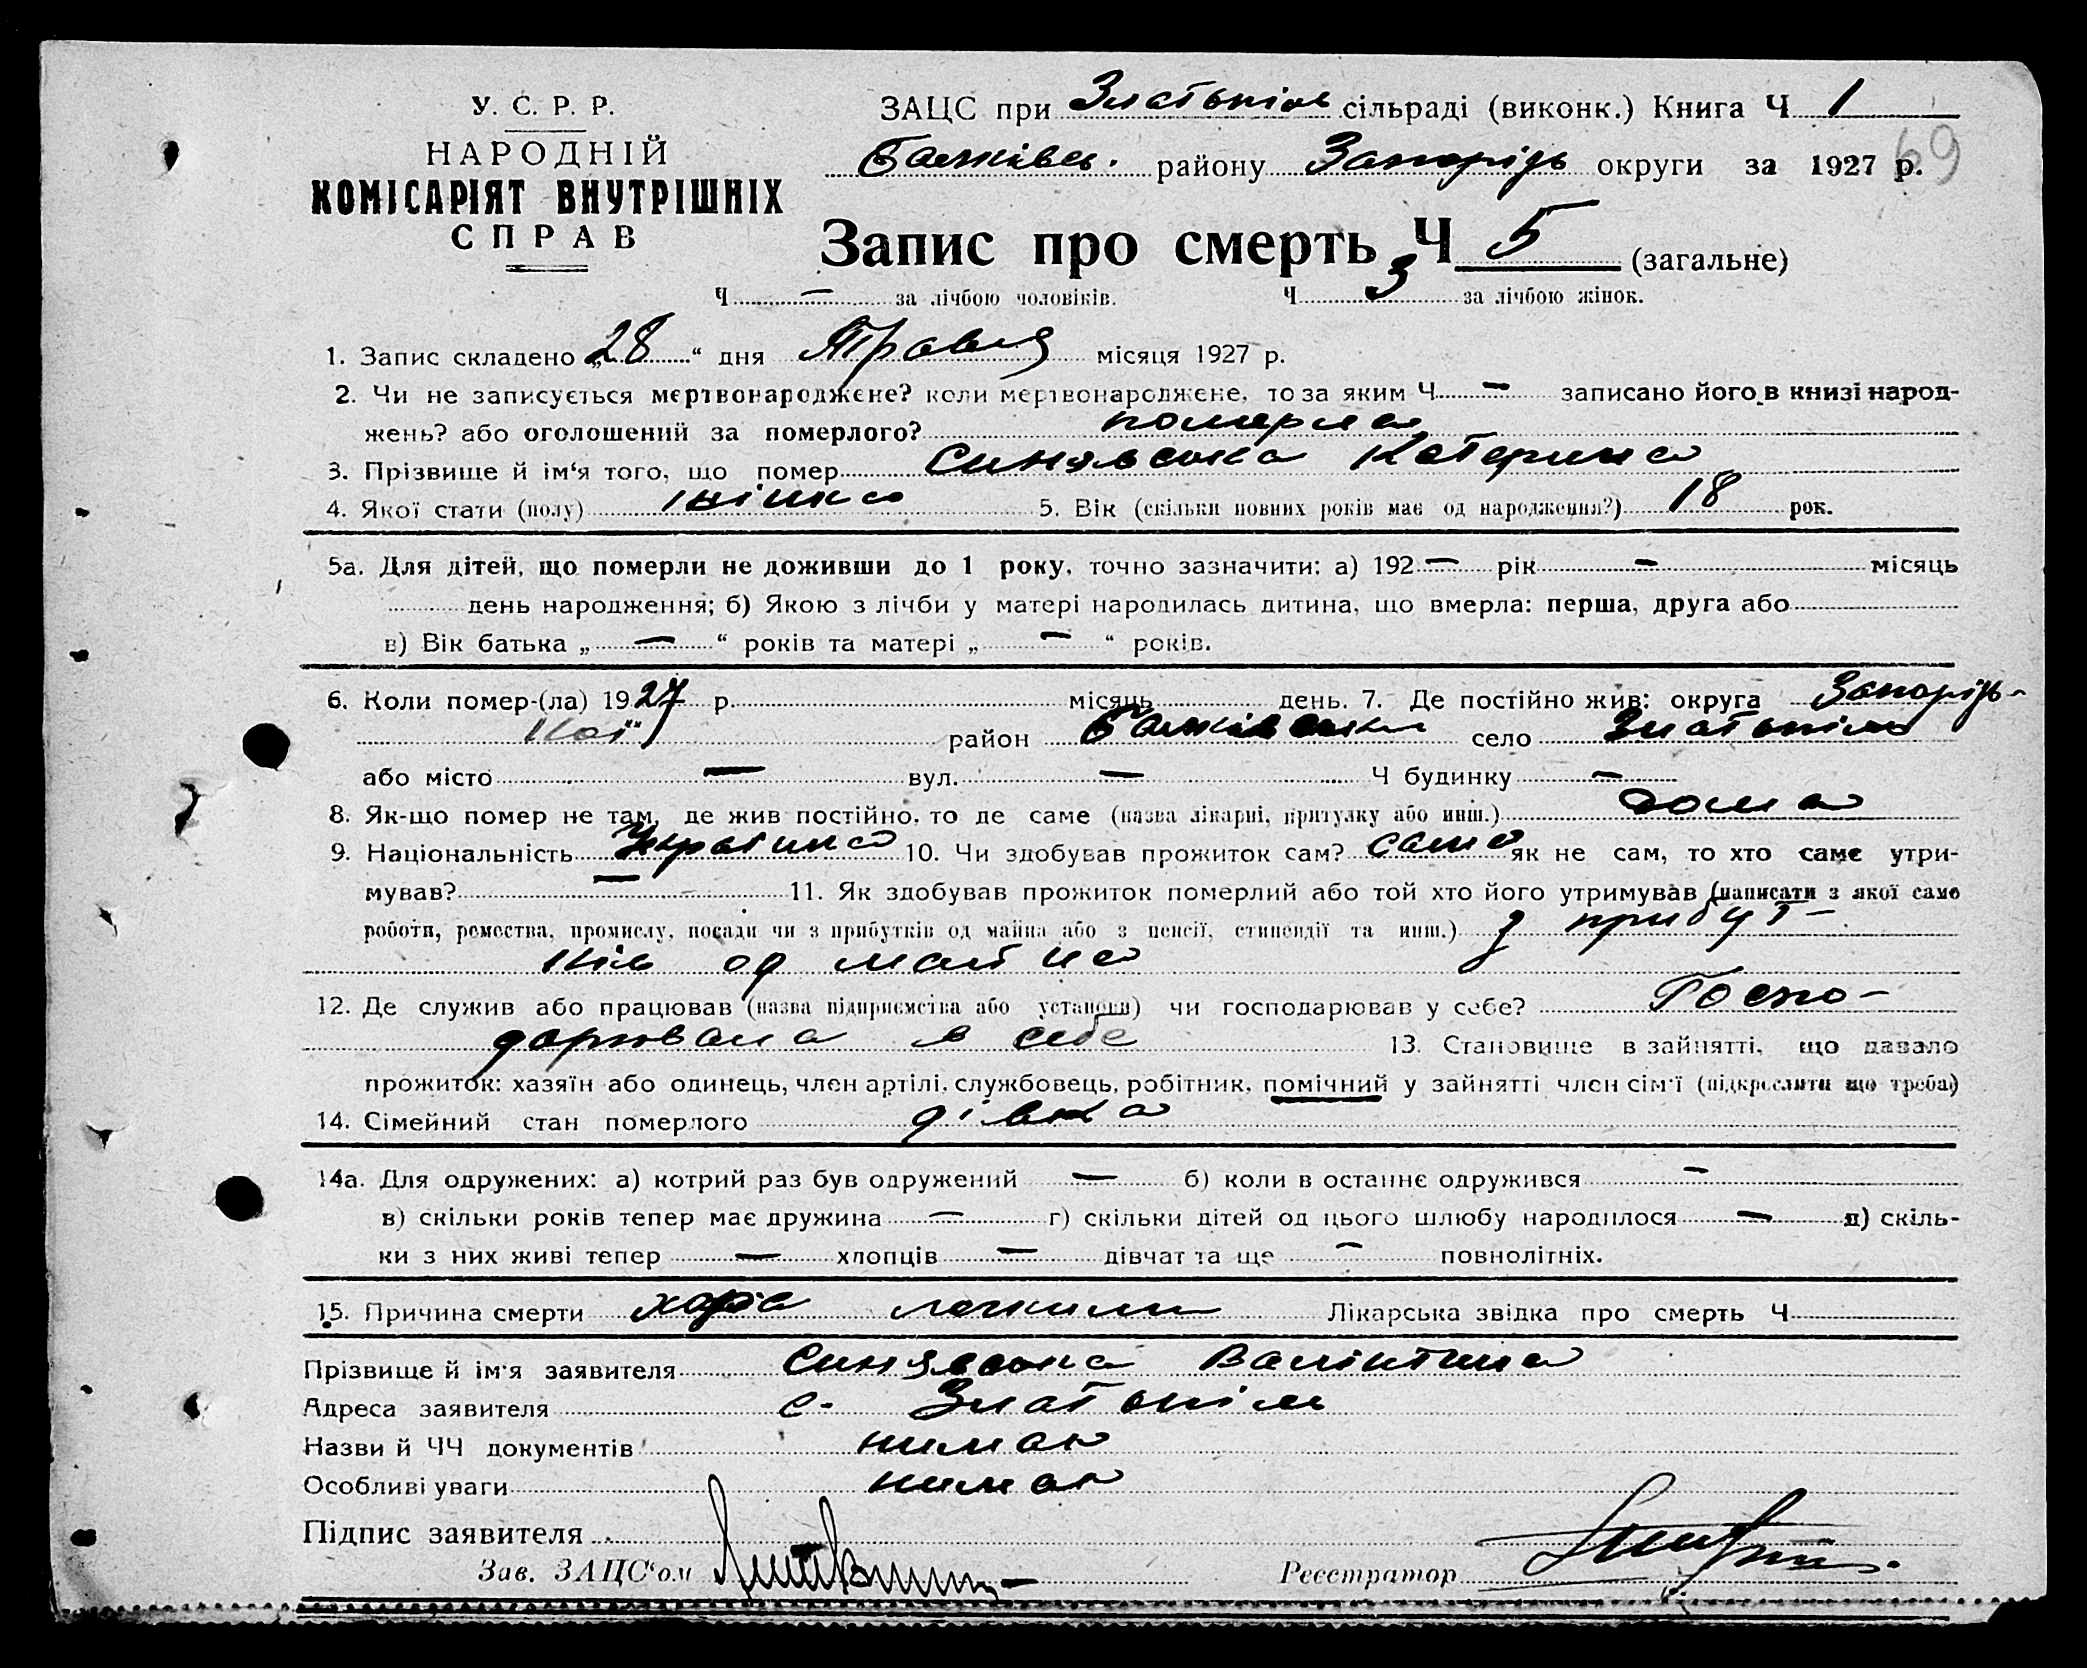 У. С. Р. Р.
НАРОДНІЙ
КОМІСАРІЯТ ВНУТРІШНІХ
СПРАВ
ЗАЦС при Златопіль сільраді (виконк.) Книга Ч 1
району Запорізь округи за 1927 р. 69
Запис про смерть Ч 5 (загальне)
Ч — за лічбою чоловіків. Ч 3 за лічбою жінок.
1. Запис складено „28“ дня Травня місяця 1927 р.
2. Чи не записується мертвонароджене? коли мертвонароджене, то за яким Ч — записано його в книзі народ-
жень? або оголошений за померлого? померла
3. Прізвище й ім'я того, що помер Синявська Катерина
4. Якої стати (полу) жінка 5. Вік (скільки повних років має од народження?) 18 рок.
5а. Для дітей, що померли не доживши до 1 року, точно зазначити: а) 192 — рік — місяць
день народження; б) Якою з лічби у матері народилась дитина, що вмерла: перша, друга або
в) Вік батька „ — “ років та матері „ — “ років.
6. Коли помер-(ла) 1927 р. місяць день. 7. Де постійно жив: округа Запорізь-
кої район село Златопіль
або місто — вул. — Ч будинку —
8. Як-що помер не там, де жив постійно, то де саме (назва лікарні, притулку або инш.) дома
9. Національність Україинка 10. Чи здобував прожиток сам? сама як не сам, то хто саме утри-
мував? — 11. Як здобував прожиток померлий або той хто його утримував (написати з якої саме
роботи, ремества, промислу, посади чи з прибутків од майна або з пенсії, стипендії та инш.) з прибут-
ків од майна
12. Де служив або працював (назва підприємства або установи) чи господарював у себе? Госпо-
дарювала в себе 13. Становище в зайнятті, що давало
прожиток: хазяїн або одинець, член артілі, службовець, робітник, помічний у зайнятті член сім'ї (підкреслити що треба)
14. Сімейний стан померлого дівка
14а. Для одружених: а) котрий раз був одружений — б) коли в останнє одружився —
в) скільки років тепер має дружина — г) скільки дітей од цього шлюбу народилося — д) скіль-
ки з них живі тепер — хлопців — дівчат та ще — повнолітніх.
15. Причина смерти хора легкими Лікарська звідка про смерть Ч
Прізвище й ім'я заявителя Синявська Валінтина
Адреса заявителя с. Златопіль
Назви й ЧЧ документів нимає
Особливі уваги нимає
Підпис заявителя
Зав. ЗАЦС'ом
Реєстратор